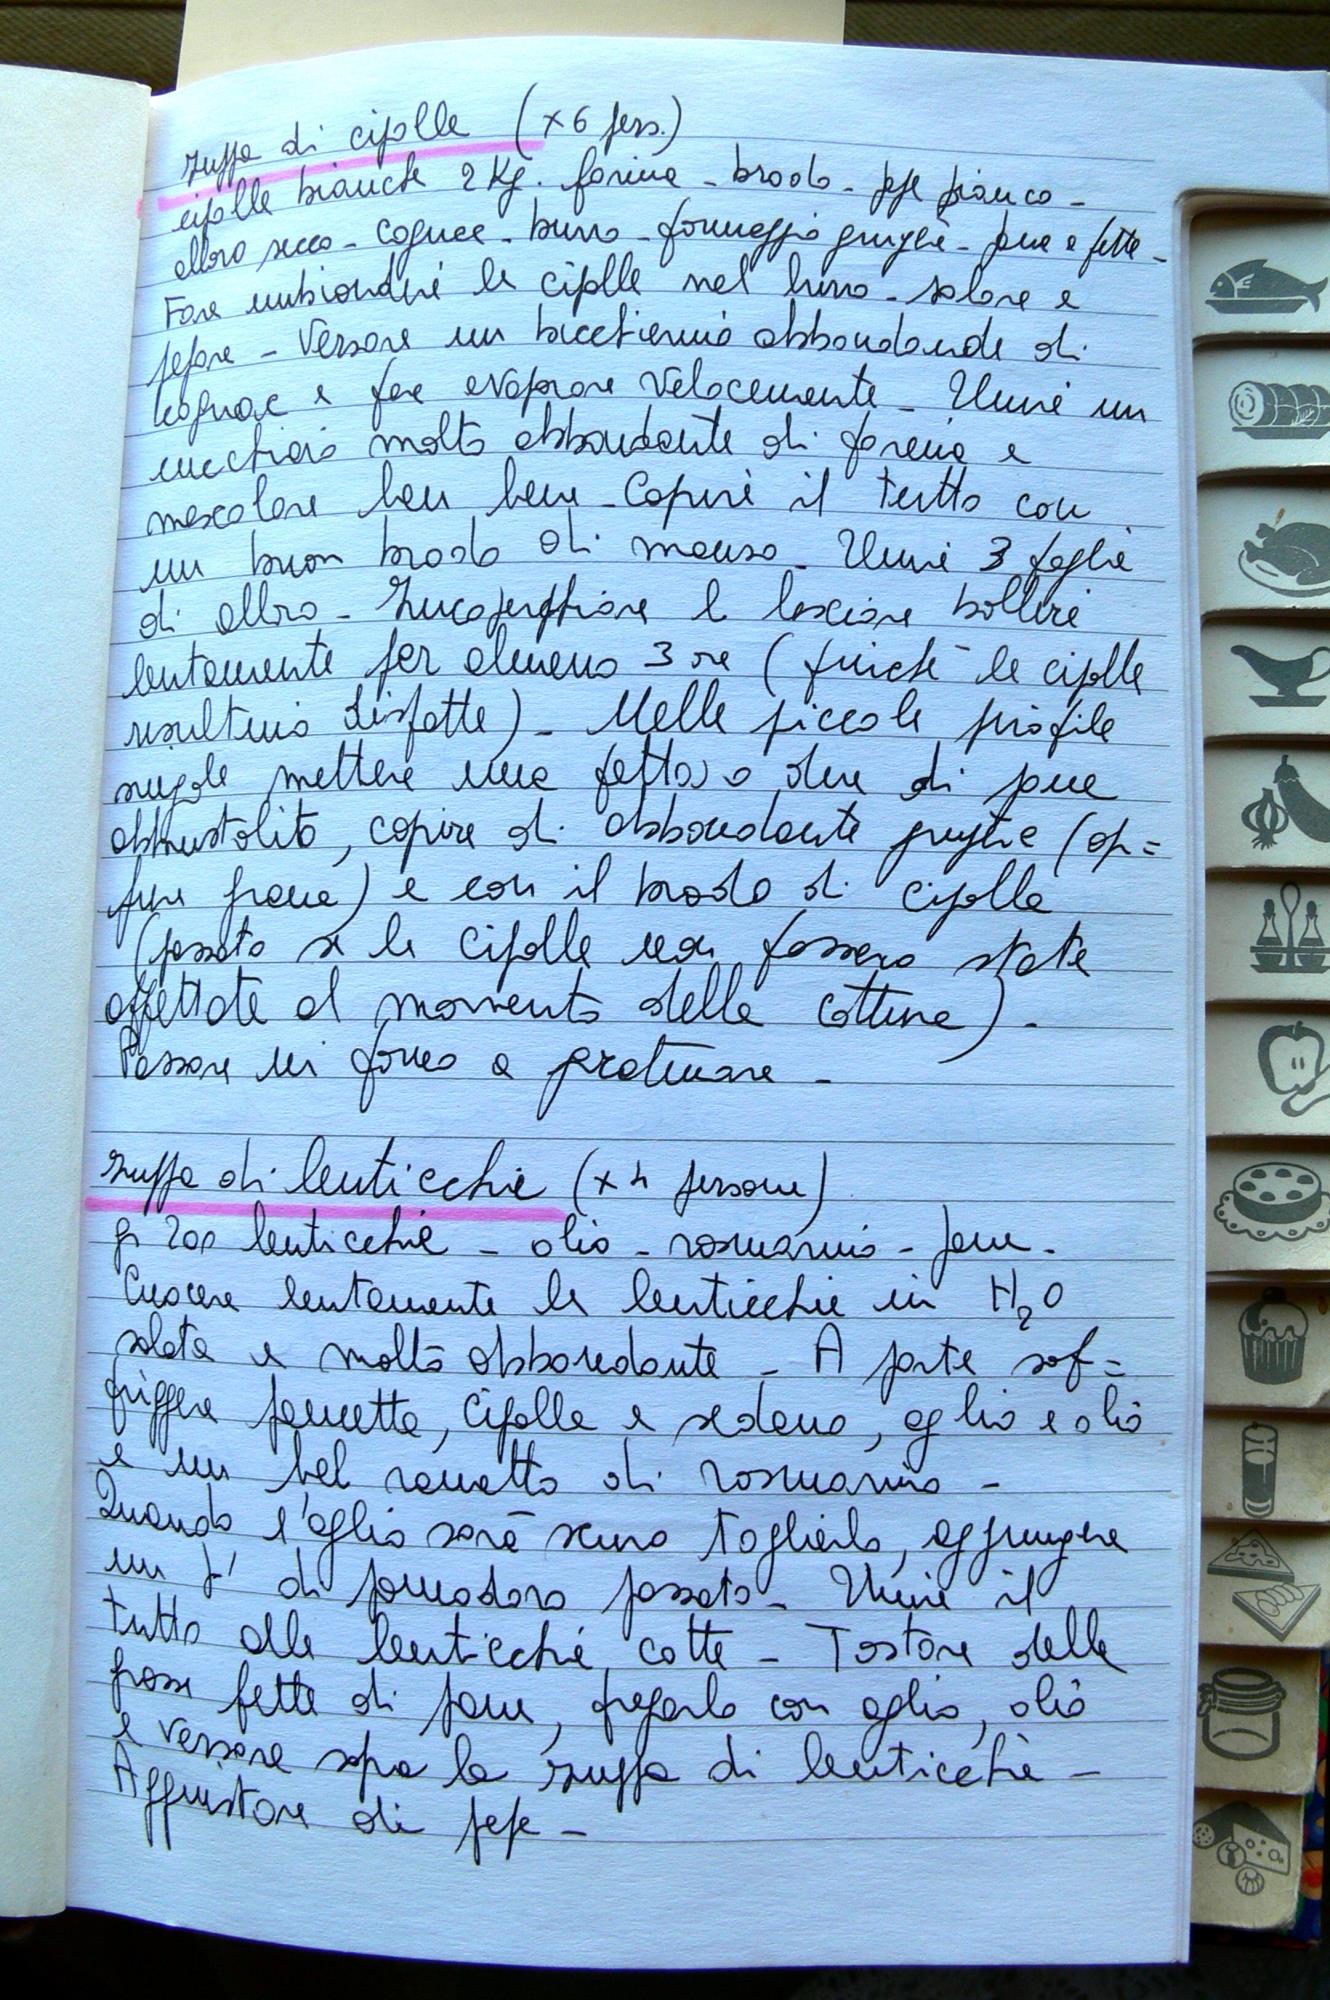 zuppa di cipolle (x 6 pers.)
cipolle bianche 2 Kg. farina - brodo - pepe bianco -
alloro secco - cognac - burro - formaggio gruyère - pane a fette -
Fare imbiondire le cipolle nel burro - salare e
pepare - Versare un bicchierino abbondante di
cognac e far evaporare velocemente - Unire un
cucchiaio molto abbondante di farina e
mescolare ben bene - Coprire il tutto con
un buon brodo di manzo - Unire 3 foglie
di alloro - Incoperchiare e lasciare bollire
lentamente per almeno 3 ore (finchè le cipolle
risultino disfatte) - Nelle piccole pirofile
singole mettere una fetta o due di pane
abbrustolito, coprire di abbondante gruyère (op=
pure grana) e con il brodo di cipolle
(passato se le cipolle non fossero state
affettate al momento della cottura) -
Passare in forno a gratinare -
zuppa di lenticchie (x 4 persone)
gr 200 lenticchie - olio - rosmarino - pane -
Cuocere lentamente le lenticchie in H2O
salata e molto abbondante - A parte sof=
friggere pancetta, cipolla e sedano, aglio e olio
e un bel rametto di rosmarino -
Quando l'aglio sarà scuro toglierlo, aggiungere
un p' di pomodoro passato - Unire il
tutto alle lenticchie cotte - Tostare delle
grosse fette di pane, fregarlo con aglio, olio
e versare sopra la zuppa di lenticchie -
Aggiustare di pepe -